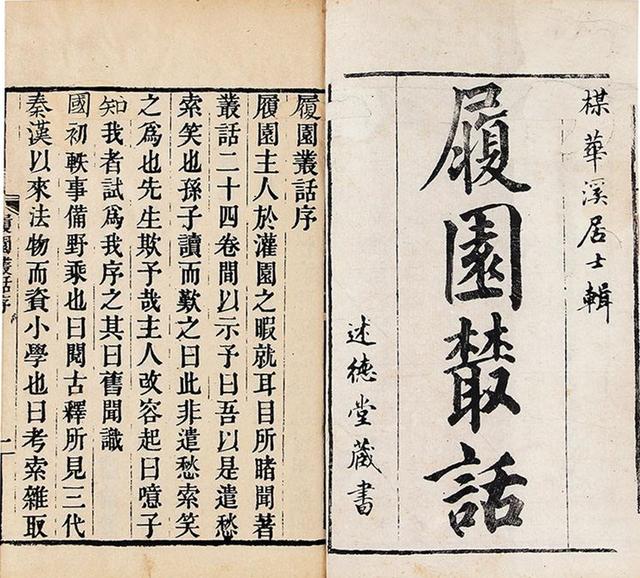 楳華溪居士輯
履園叢話
述德堂藏書
履園叢話序
履園主人於灌園之暇就耳目所睹聞著
叢話二十四卷間以示予曰吾以是遣愁
索笑也孫子讀而歎之曰此非遣愁索笑
之爲也先生欺予哉主人改容起曰噫子
知我者試爲我序之其曰舊聞識
國初軼事備野乘也曰閱古釋所見三代
秦漢以來法物而資小學也曰考索雜取
履園叢話序 一